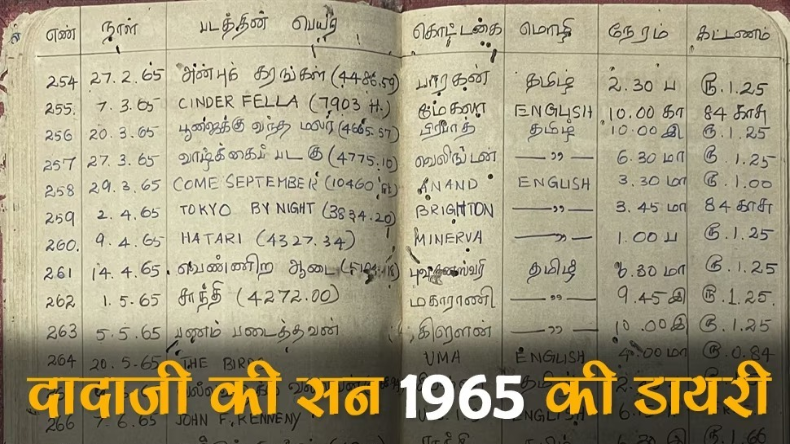 எண் நாள் படத்தின் பெயர் கொட்டகை மொழி நேரம் கட்டணம்
254 27.2.65 அன்புக் கரங்கள் (4486.59) பாரகன் தமிழ் 2.30 ப ரூ.1.25
255. 7.3.65 CINDER FELLA (7903 ft.) ENGLISH 10.00 கா 84 காசு
256 20.3.65 பூஜைக்கு வந்த மலர் (4665.57) பிராட் தமிழ் 10.00 இ ரூ.1.25
257 27.3.65 வாழ்க்கைப் படகு (4775.10) வெலிங்டன் —〃— 6.30 மா ரூ.1.25
258 29.3.65 COME SEPTEMBER (10460 ft.) ANAND ENGLISH 3.30 மா ரூ.1.00
259 2.4.65 TOKYO BY NIGHT (3834.20) BRIGHTON —〃— 3.45 மா 84 காசு
260. 9.4.65 HATARI (4327.34) MINERVA —〃— 1.00 ப ரூ.1.25
261 14.4.65. வெண்ணிற ஆடை புவனேஸ்வரி தமிழ் 6.30 மா ரூ.1.25
262 1.5.65 சாந்தி (4272.00) மகாராணி —〃— 9.45 இ ரூ.1.25.
263 5.5.65 பணம் படைத்தவன் கிரௌன் —〃— 10.00 இ ரூ.1.25
264 20.5.65 THE BIRDS UMA ENGLISH 4.00 மா ரூ.0.84
266 7.6.65 JOHN F. KENNENY ENGLISH
दादाजी की सन 1965 की डायरी